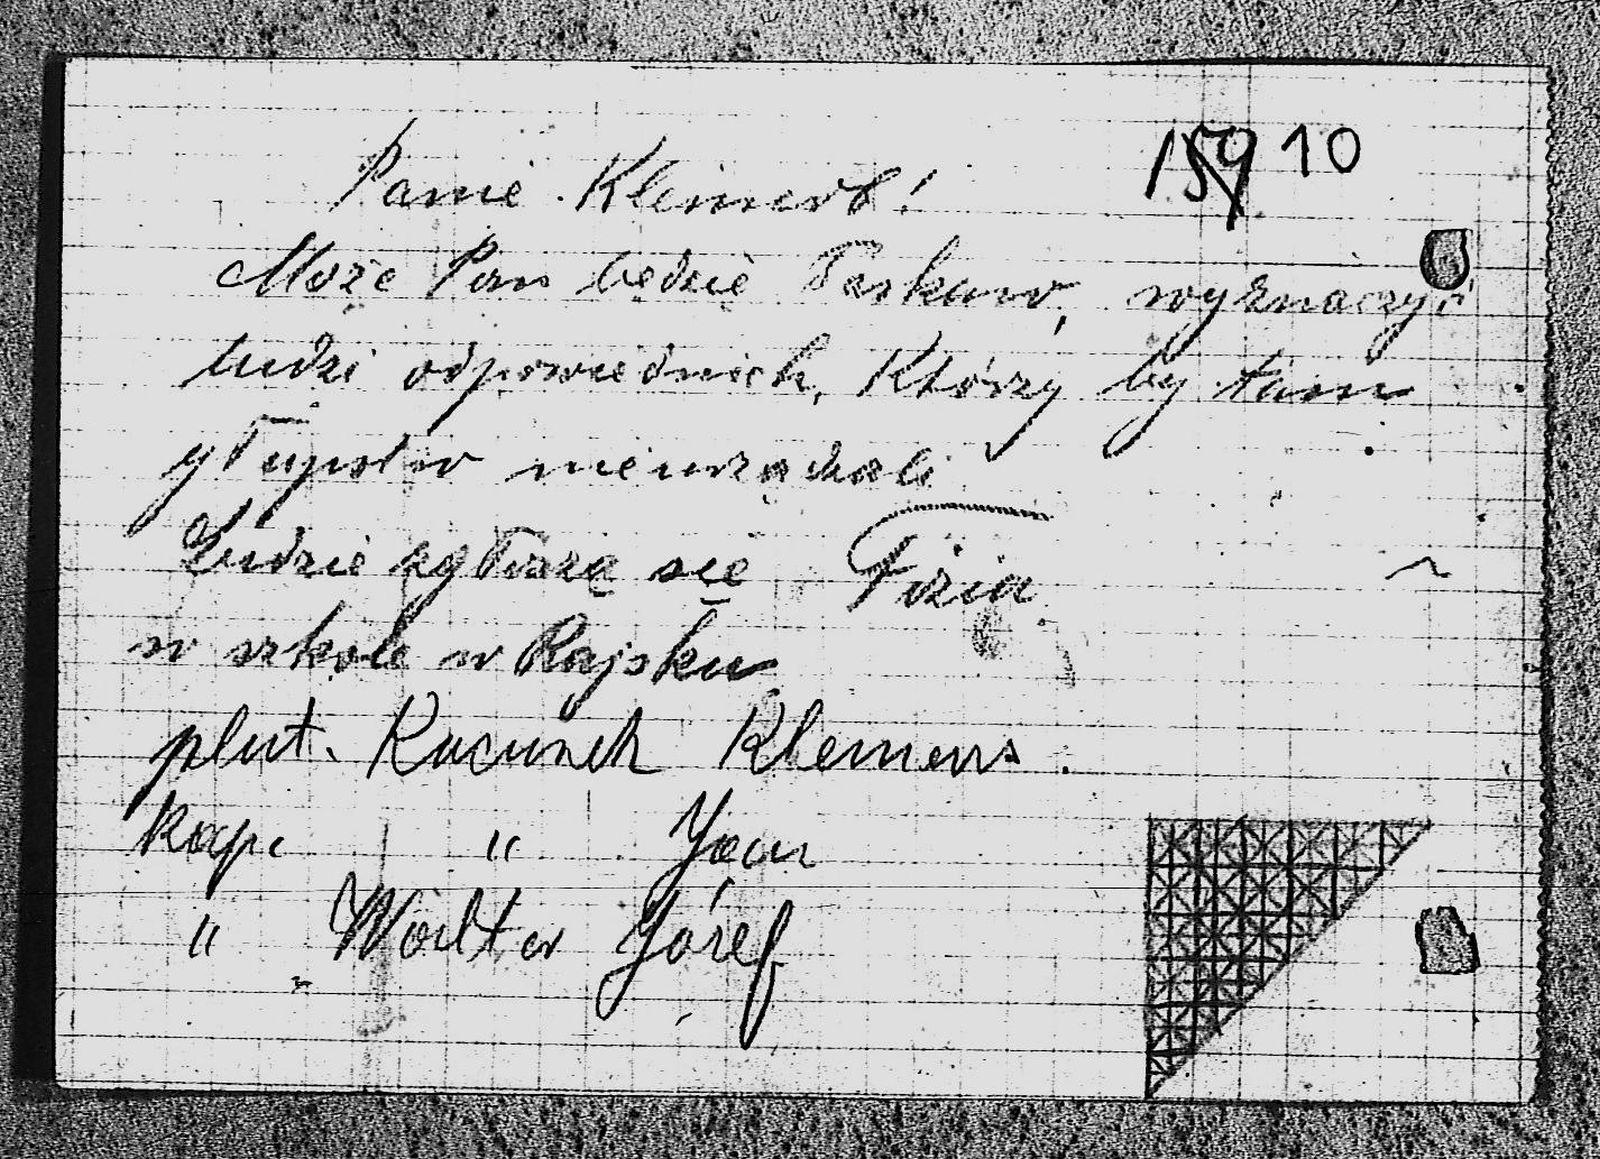 159 10
Panie Klemens!
Może Pan będzie łaskaw, wyznaczyć
ludzi odpowiednich, Którzy by tam
głupstw nieurządzali
Ludzie zgłoszą się Fizia
w szkole w Rajsku
plut. Kucunek Klemens.
Kap. " Jan
" Walter Józef